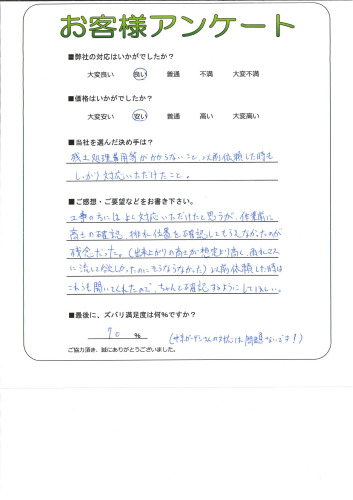 お客様アンケート
■弊社の対応はいかがでしたか?
大変良い 良い 普通 不満 大変不満
■価格はいかがでしたか?
大変安い 安い 普通 高い 大変高い
■当社を選んだ決め手は?
残土処理費用等がかからないこと、以前依頼した時も
しっかり対応いただけたこと。
■ご感想・ご要望などをお書き下さい。
工事の方にはよく対応いただけたと思うが、作業前に
高さの確認、排水位置を確認してもらえなかったのが
残念だった。(出来上がりの高さが想定より高く、雨水マスに
に流してほしかったがそうならなかった)以前依頼した時は
これらも聞いてくれたので、ちゃんと確認するようにしてほしい。
■最後に、ズバリ満足度は何%ですか?
70 %
の対応は問題ないです!)
ご協力頂き、誠にありがとうございました。